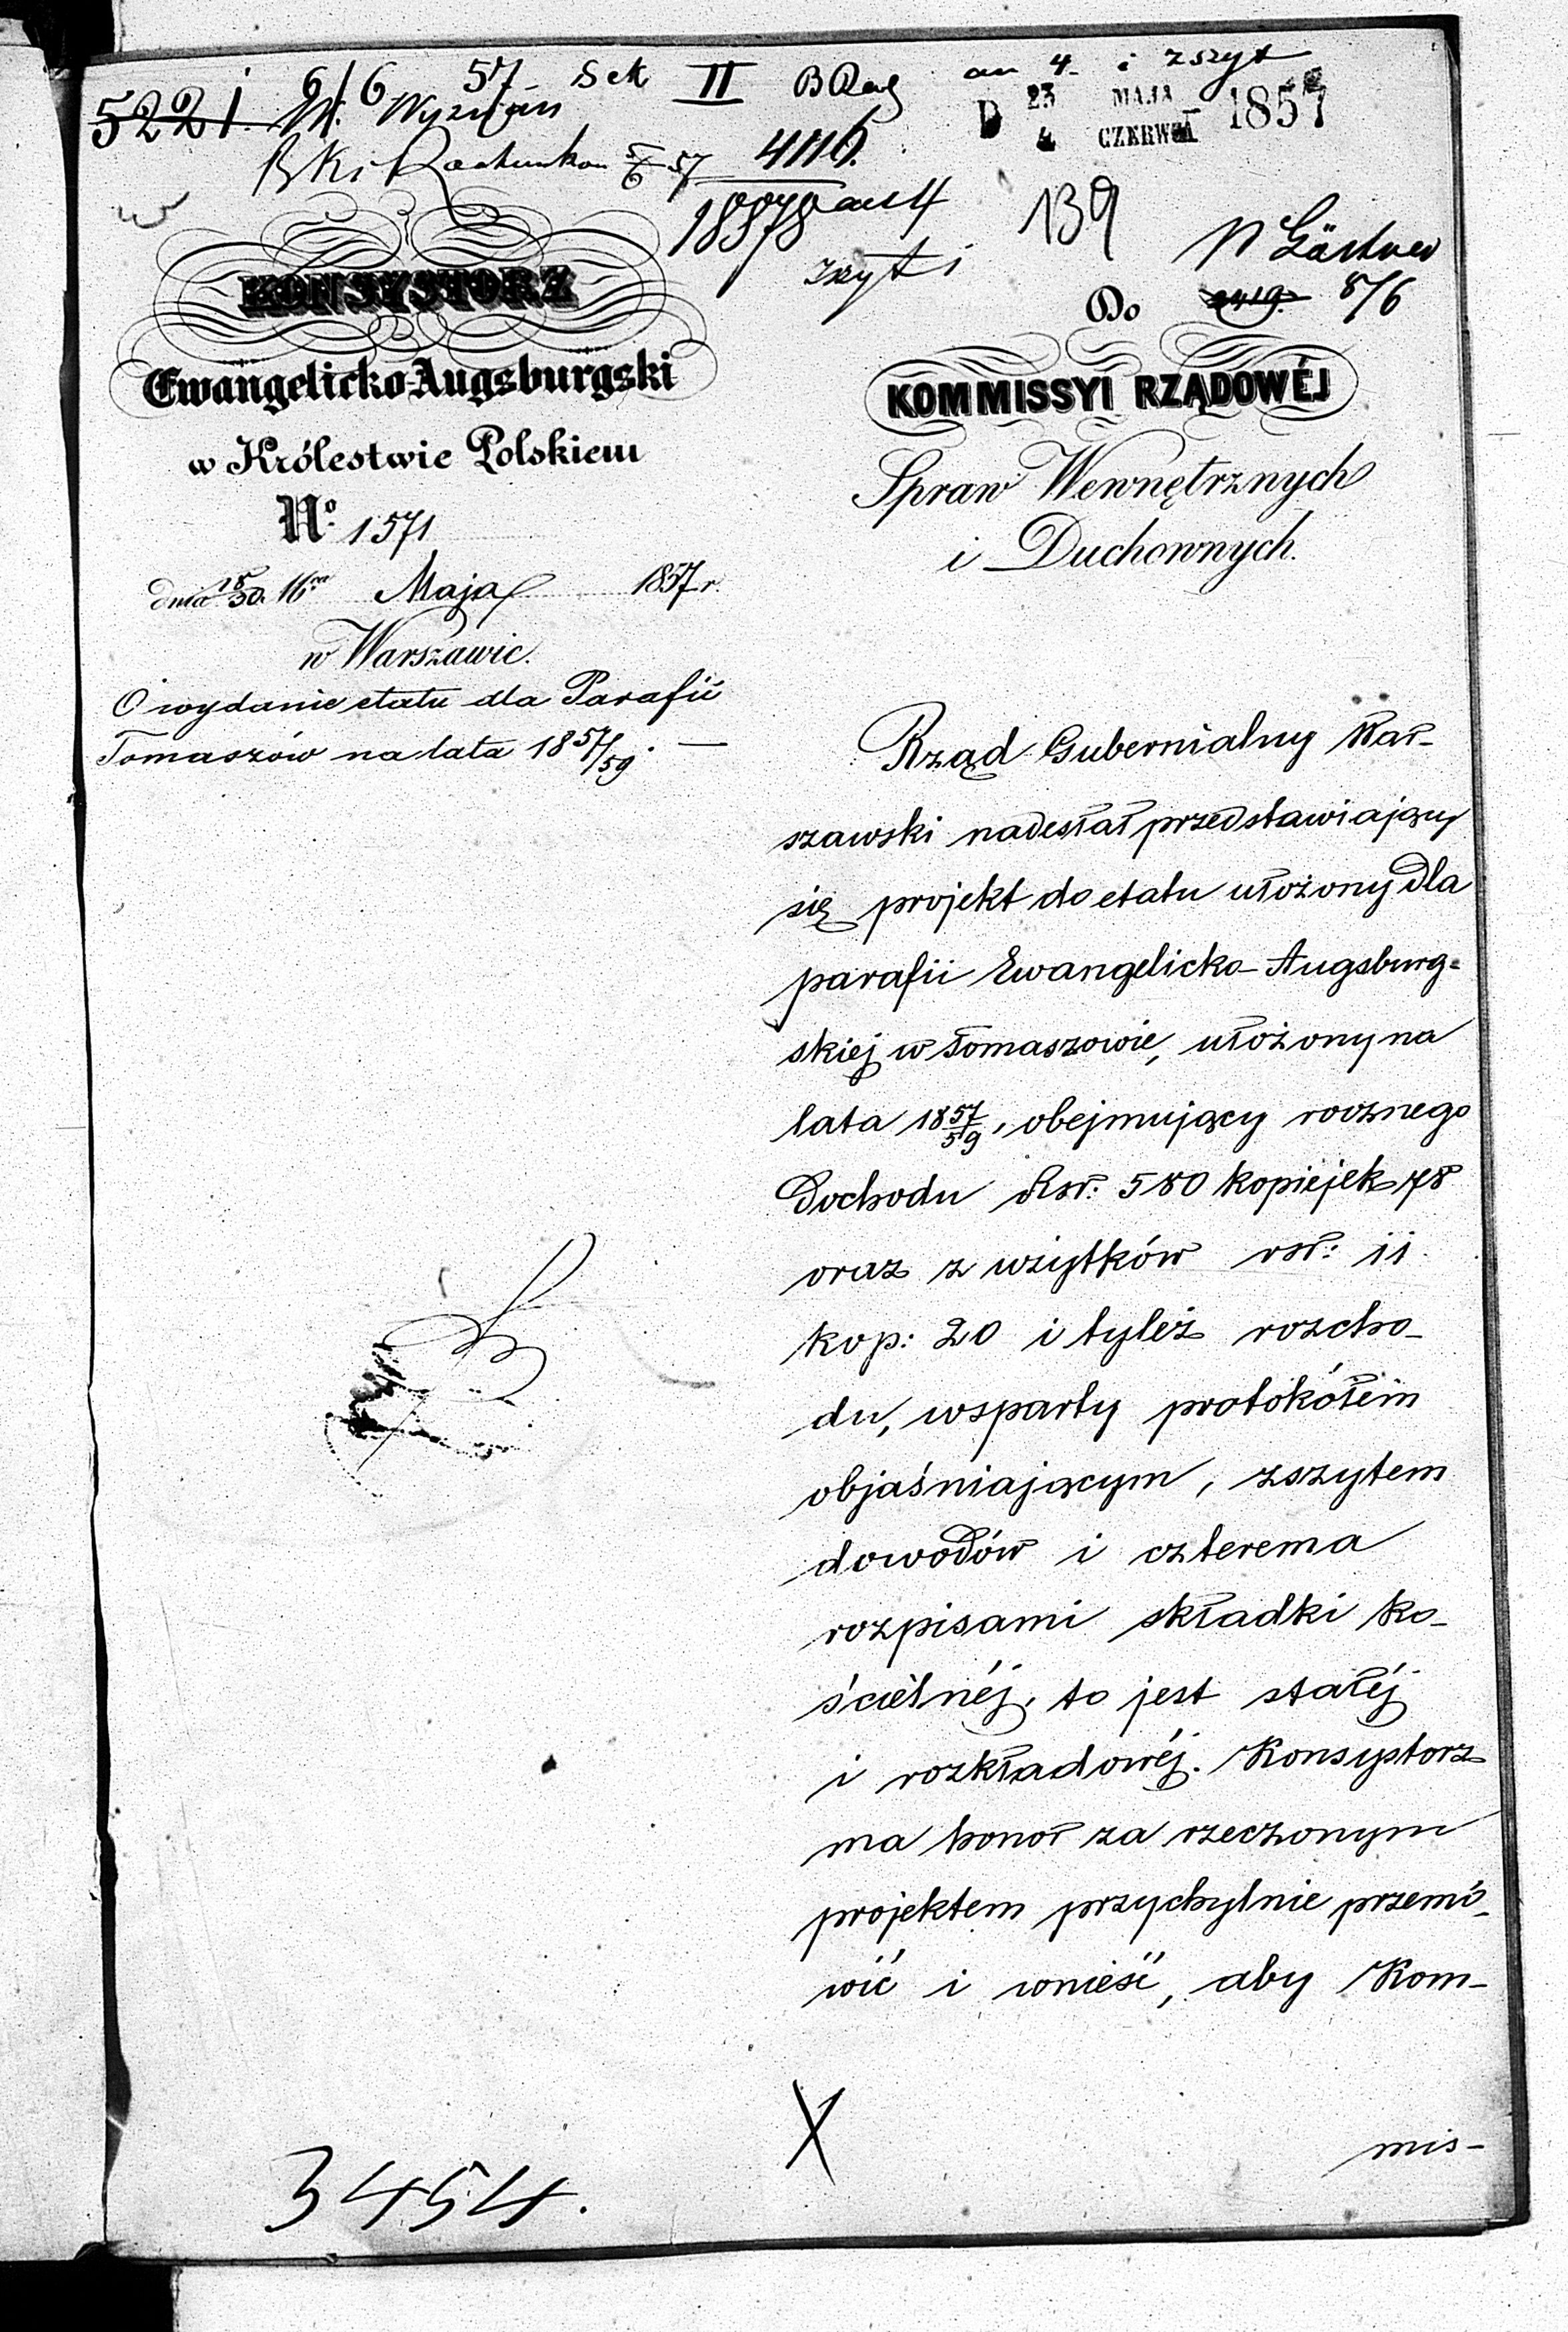 5221. 6/6 57 Sek II B Rag an 4. i zszyt
Wyznań D 23 MAJA 4 CZERWCA 1857
B K i Rachunkow 5/6 57 4116.
18878 an 4 139
zszyt i
8/6
KONSYSTORZ
Ewangelicko-Augsburgski
w Królestwie Polskiem
No. 1571
dnia 18/30 Maja 1857 r.
w Warszawie.
O wydanie etatu dla Parafii
Tomaszów na lata 1857/59. —
Do
KOMMISSYI RZĄDOWÉJ
Spraw Wewnętrznych
i Duchownych.
Rząd Gubernialny War-
szawski nadesłał przedstawiający
się projekt do etatu ułożony dla
parafii Ewangelicko-Augsburg-
skiej w Tomaszowie, ułożony na
lata 1857/59, obejmujący rocznego
Dochodu Rsr: 580 kopiejek 78
oraz z użytków rsr: 11
kop: 20 i tyleż rozcho-
du, wsparty protokółem
objaśniającym, zszytem
dowodów i czterema
rozpisami składki ko-
ścielnéj, to jest stałéj
i rozkładowéj. Konsystorz
ma honor za rzeczonym
projektem przychylnie przemó-
wić i wnieść, aby Kom-
mis-
X
3454.